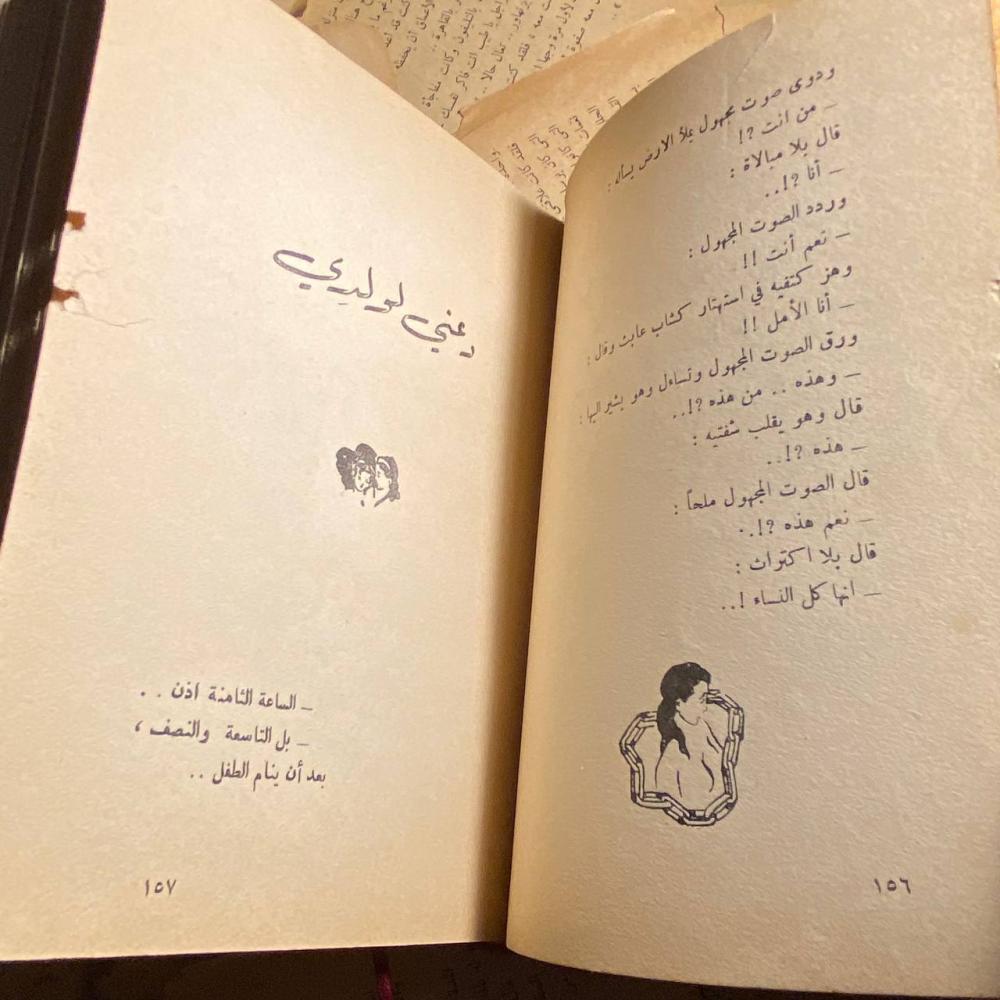 ودوى صوت مجهول يملأ الارض يسأله :
– من انت ?!
قال بلا مبالاة :
– أنا ?!..
وردد الصوت المجهول :
– نعم أنت !!
وهز كتفيه في استهتار كشاب عابث وقال :
– أنا الأمل !!
ورق الصوت المجهول وتساءل وهو يشير اليها :
– وهذه .. من هذه ?!..
قال وهو يقلب شفتيه :
– هذه ?!..
قال الصوت المجهول ملحاً :
– نعم هذه ?!..
قال بلا اكتراث :
– انها كل النساء !..
١٥٦
دعني لولدي
– الساعة الثامنة اذن . .
– بل التاسعة والنصف ،
بعد أن ينام الطفل ..
١٥٧